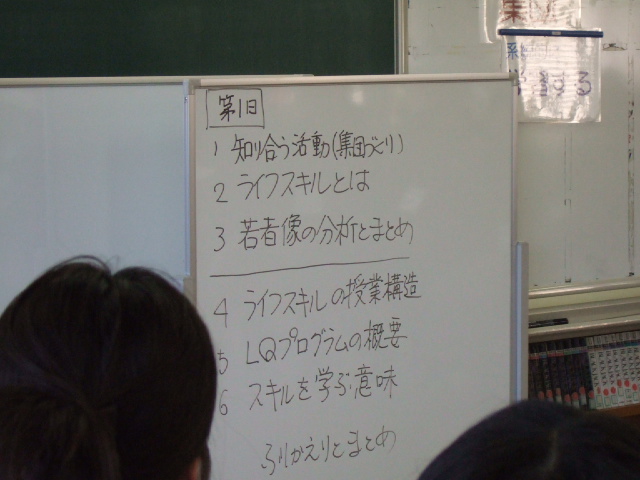 第1日
1 知り合う活動(集団づくり)
2 ライフスキルとは
3 若者像の分析とまとめ
4 ライフスキルの授業構造
5 LQプログラムの概要
6 スキルを学ぶ意味
ふりかえりとまとめ